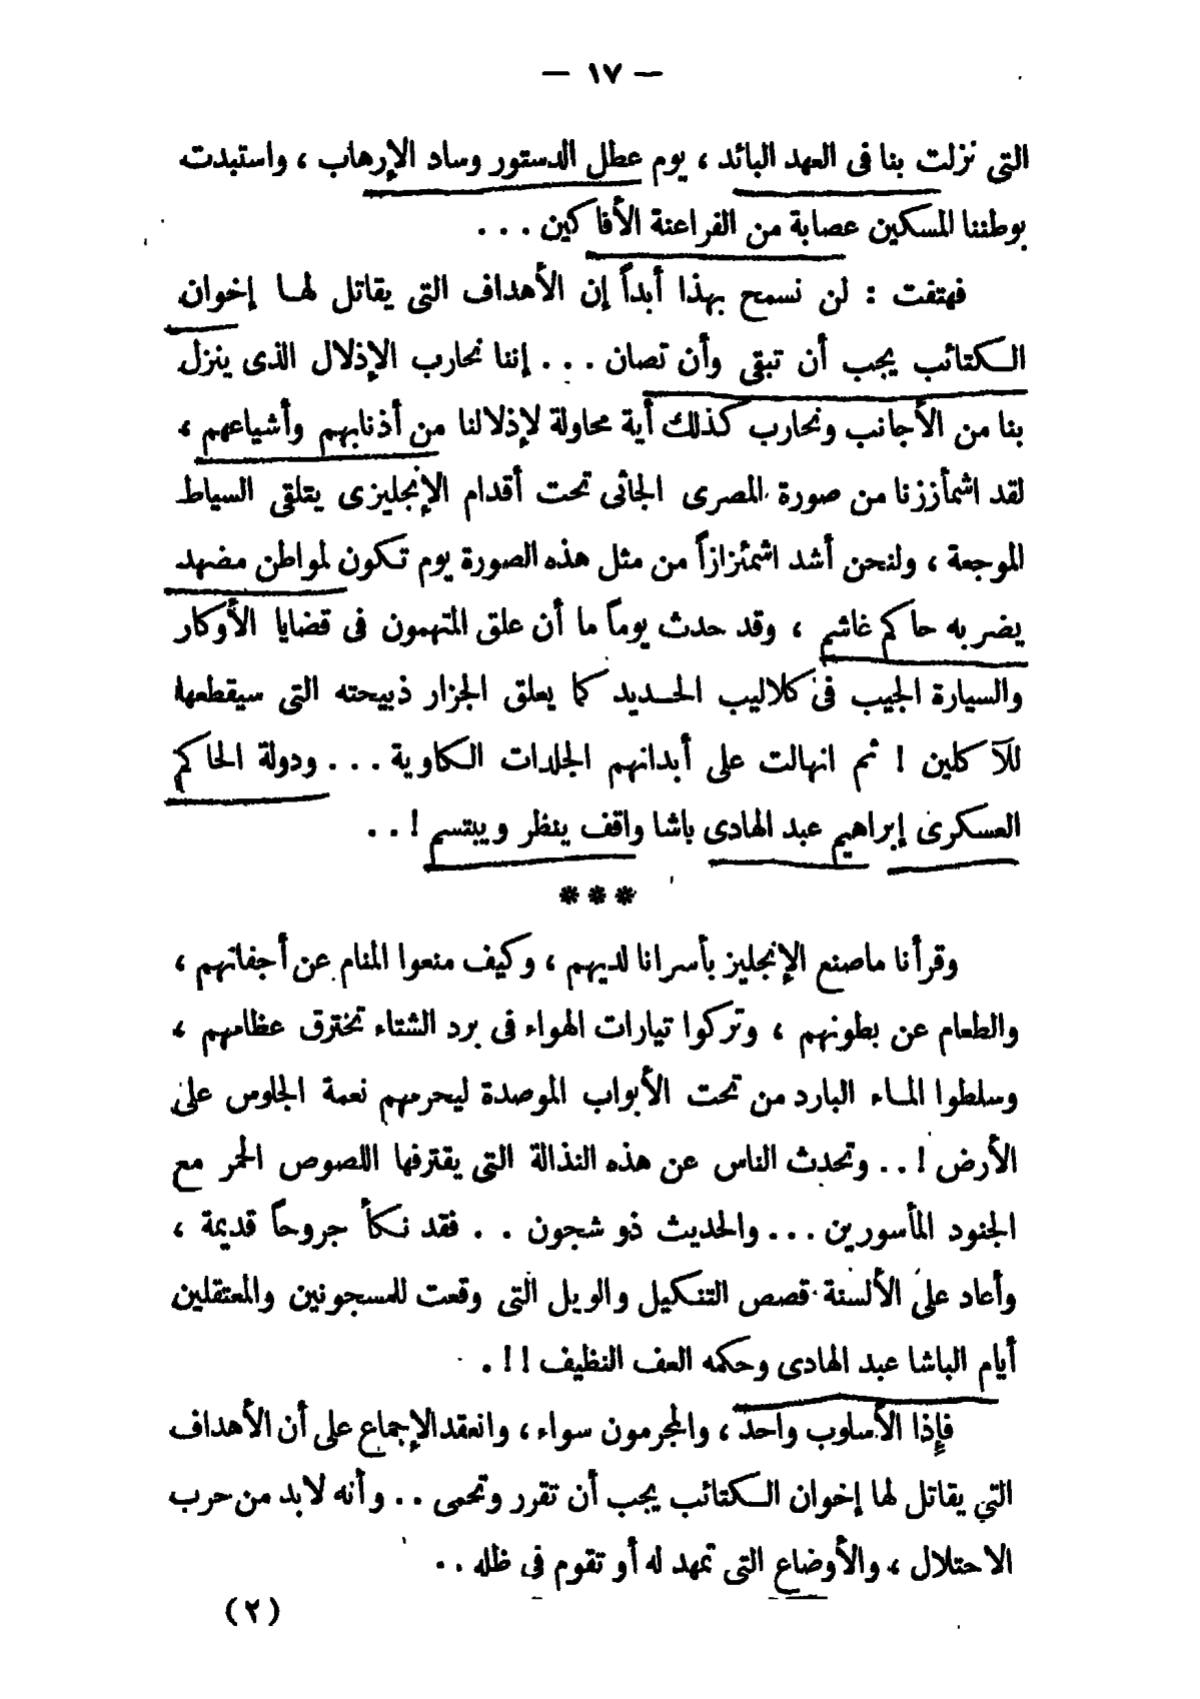 — ١٧ —
التى نزلت بنا فى العهد البائد ، يوم عطل الدستور وساد الإرهاب ، واستبدت
بوطننا المسكين عصابة من الفراعنة الأفاكين . . .
فهتفت : لن نسمح بهذا أبداً إن الأهداف التى يقاتل لها إخوان
الكتائب يجب أن تبقى وأن تصان . . . إننا نحارب الإذلال الذى ينزل
بنا من الأجانب ونحارب كذلك أية محاولة لإذلالنا من أذنابهم وأشياعهم ،
لقد اشمأززنا من صورة المصرى الجاثى تحت أقدام الإنجليزى يتلقى السياط
الموجعة ، ولنحن أشد اشمئزازاً من مثل هذه الصورة يوم تكون لمواطن مضهد
يضربه حاكم غاشم ، وقد حدث يوماً ما أن علق المتهمون فى قضايا الأوكار
والسيارة الجيب فى كلاليب الحديد كما يعلق الجزار ذبيحته التى سيقطعها
للآكلين ! ثم انهالت على أبدانهم الجلدات الكاوية . . . ودولة الحاكم
العسكرى إبراهيم عبد الهادى باشا واقف ينظر ويبتسم ! . .
***
وقرأنا ماصنع الإنجليز بأسرانا لديهم ، وكيف منعوا المنام عن أجفانهم ،
والطعام عن بطونهم ، وتركوا تيارات الهواء فى برد الشتاء تخترق عظامهم ،
وسلطوا الماء البارد من تحت الأبواب الموصدة ليحرمهم نعمة الجلوس على
الأرض ! . . وتحدث الناس عن هذه النذالة التى يقترفها اللصوص الحمر مع
الجنود المأسورين . . . والحديث ذو شجون . . فقد نكأ جروحاً قديمة ،
وأعاد على الألسنة قصص التنكيل والويل التى وقعت للمسجونين والمعتقلين
أيام الباشا عبد الهادى وحكمه العف النظيف ! ! .
فإذا الأسلوب واحد ، والمجرمون سواء ، وانعقد الإجماع على أن الأهداف
التي يقاتل لها إخوان الكتائب يجب أن تقرر وتحمى . . وأنه لابد من حرب
الاحتلال ، والأوضاع التى تمهد له أو تقوم فى ظله . .
(٢)